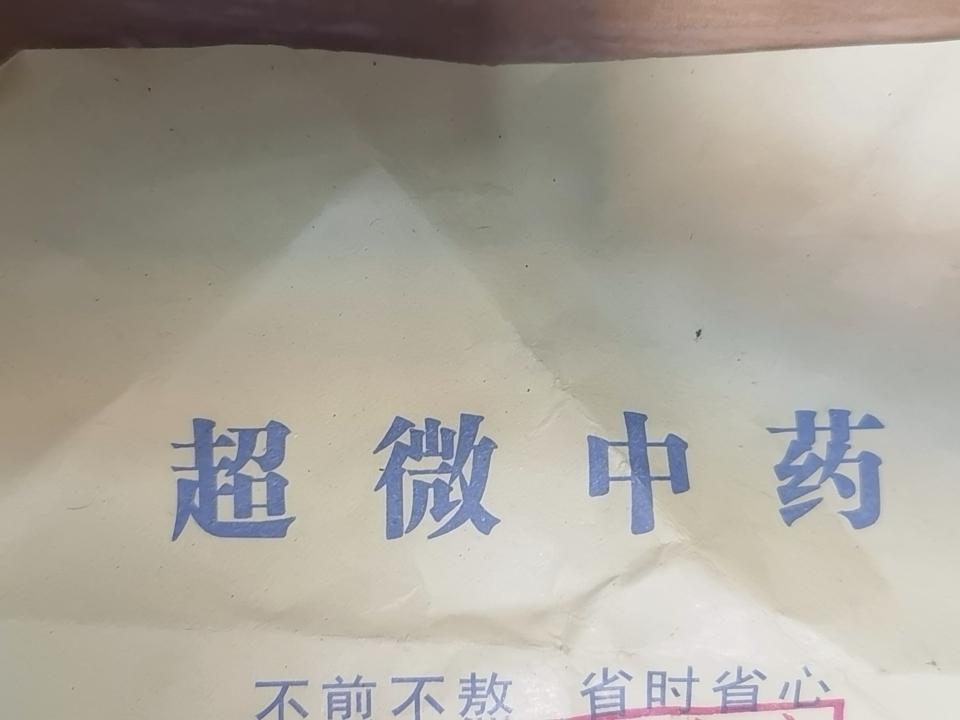 超微中药
不前不熬 省时省心